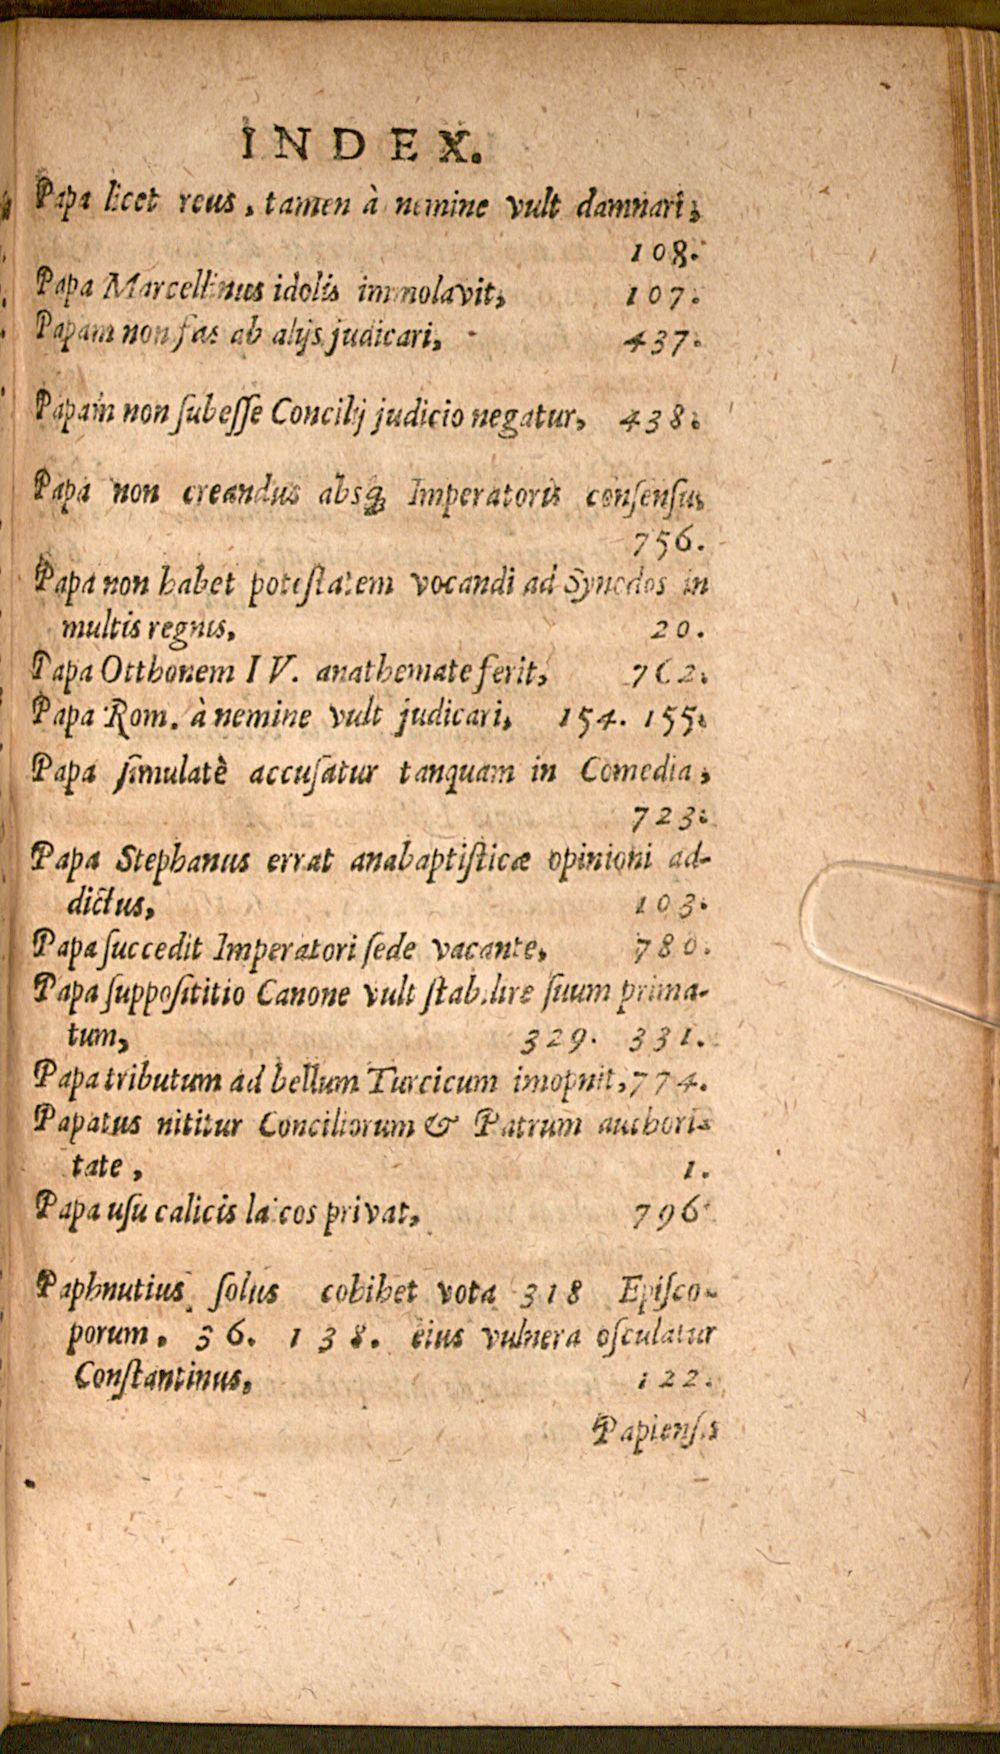 INDEX.
Papa licet reus, tamen à nemine vult damnari,
108.
Papa Marcellinus idolis immolavit, 107.
Papam non fas ab alijs judicari, 437.
Papam non ſubeſſe Concilij judicio negatur, 438.
Papa non creandus absq; Imperatoris conſenſu,
756.
Papa non habet poteſtatem vocandi ad Synodos in
multis regnis, 20.
Papa Otthonem IV. anathemate ferit, 762.
Papa Rom. à nemine vult judicari, 154. 155.
Papa ſimulatè accuſatur tanquam in Comedia,
723.
Papa Stephanus errat anabaptiſticæ opinioni ad-
dictus, 103.
Papa ſuccedit Imperatori ſede vacante, 780.
Papa ſuppoſititio Canone vult ſtabilire ſuum prima-
tum, 329. 331.
Papa tributum ad bellum Turcicum imopnit, 774.
Papatus nititur Conciliorum & Patrum authori-
tate, 1.
Papa uſu calicis laicos privat, 796.
Paphnutius ſolus cohibet vota 318 Epiſco-
porum. 36. 138. eius vulnera oſculatur
Conſtantinus, 122.
Papienſis